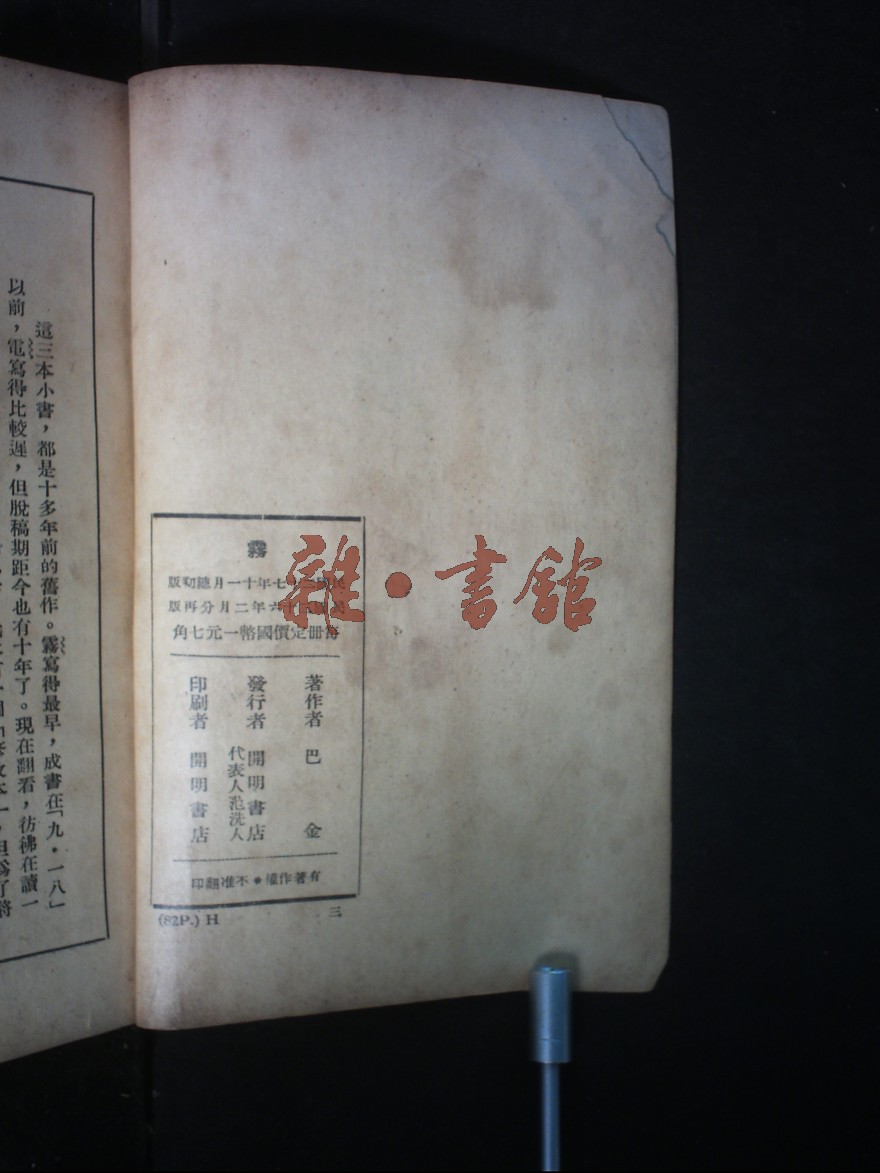 霧
民國二十七年十一月總初版
民國三十六年二月分再版
每冊定價國幣一元七角
著作者 巴金
發行者 開明書店
代表人范洗人
印刷者 開明書店
有著作權•不准翻印
三
(82P.) H
雜•書館
這三本小書，都是十多年前的舊作。霧寫得最早，成書在「九•一八」
以前，電寫得比較遲，但脫稿期距今也有十年了。現在翻看，彷彿在讀一